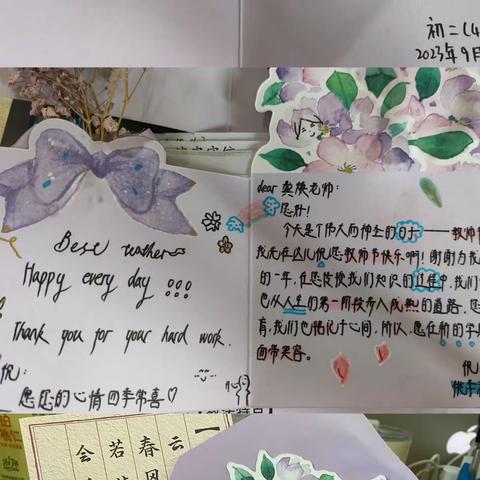 初二(4
2023年9月
Best teacher
Happy every day !!!
Thank you for your hard work.
祝:
愿您的心情四季常喜♡
开心
dear 樊焕老师:
您好!
今天是个伟人而神圣的日子——教师节
我先在这儿祝您教师节快乐啊!谢谢
的一年,在您传授我们知识的过程中,我们
也从人生的第一阶段步入成熟的道路,您
育,我们也铭记于心间,所以,愿在新的学期
面带笑容。
祝
云
春
若
会